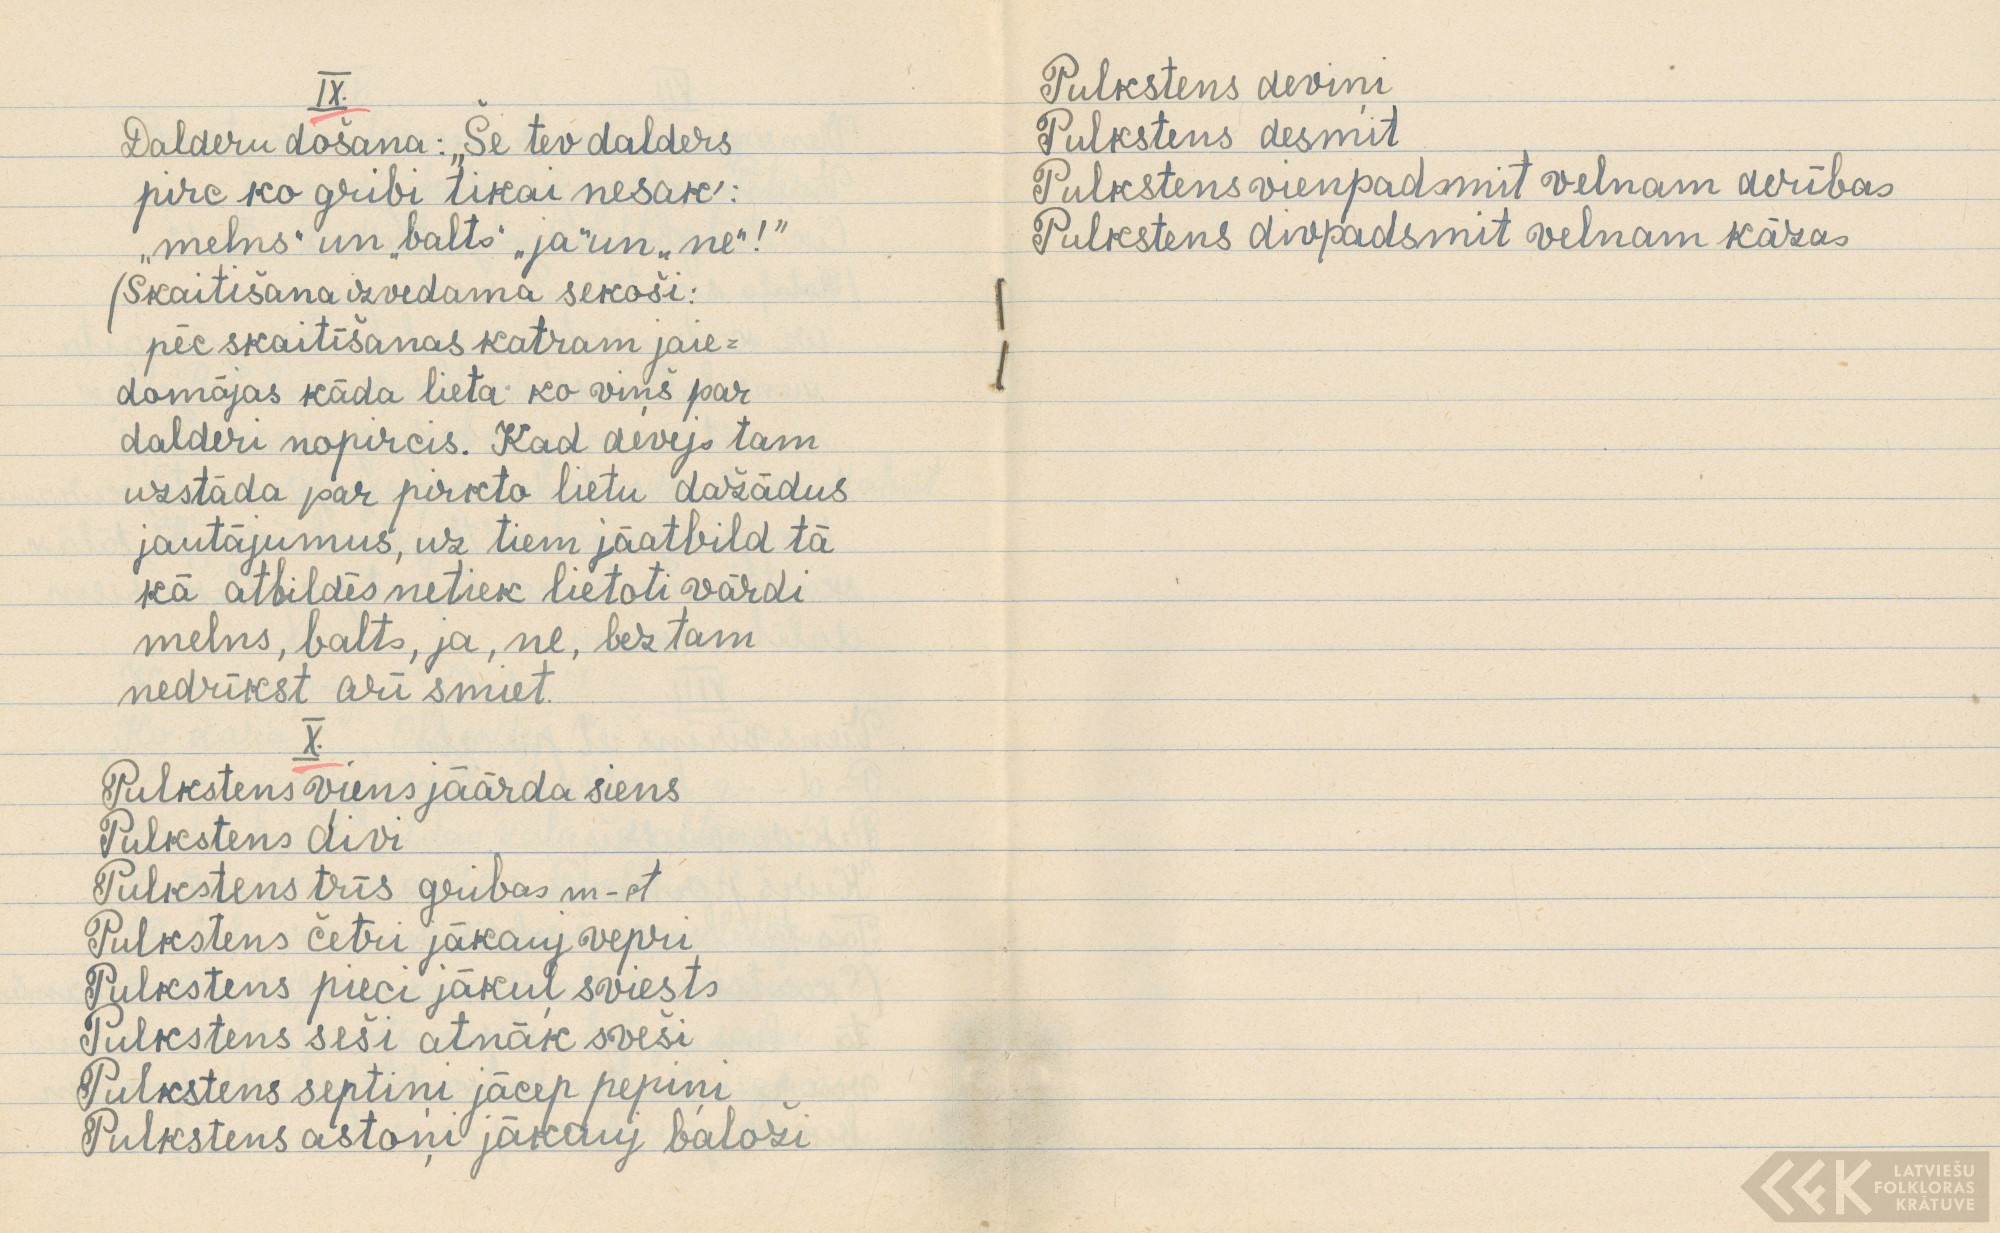 IX.
Dalderu došana: „Še tev dalders
pirc ko gribi tikai nesak':
„melns" un „balts" „ja" un „ne"!"
(Skaitišana izvedama sekoši:
pēc skaitīšanas katram jaie=
domājas kāda lieta ko viņš par
dalderi nopircis. Kad devejs tam
uzstāda par pirkto lietu dažādus
jautājumus, uz tiem jāatbild tā
kā atbildēs netiek lietoti vārdi
melns, balts, ja, ne, bez tam
nedrīkst arī smiet.
X.
Pulkstens viens jāārda siens
Pulkstens divi
Pulkstens trīs gribas m-t
Pulkstens četri jākauj vepri
Pulkstens pieci jākuļ sviests
Pulkstens seši atnāk sveši
Pulkstens septiņi jācep pepiņi
Pulkstens astoņi jākauj baloži
Pulkstens deviņi
Pulkstens desmit
Pulkstens vienpadsmit velnam derības
Pulkstens divpadsmit velnam kāzas
LATVIEŠU
FOLKLORAS
KRĀTUVE